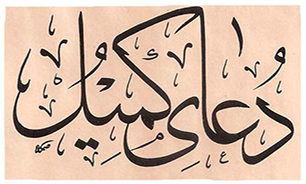 دُعای کُمیْل